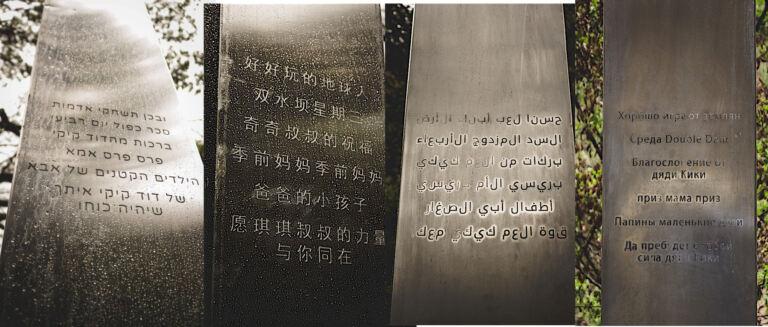 ובכן תשחקי אדמות
סכר כפול יום רביעי
ברכות מחדוד קיקי
פרס פרס אמא
הילדים הקטנים של אבא
של דוד קיקי איתך
שיהיה כוחו
好好玩的地球人
双水坝星期三
奇奇叔叔的祝福
季前妈妈季前妈妈
爸爸的小孩子
愿琪琪叔叔的力量
与你同在
حسنا لعب أبناء الأرض
السد المزدوج الأربعاء
بركات من العم كيكي
بريسي الأم بريسي
أطفال أبي الصغار
قوة العم كيكي معك
Хорошо играет землян
Среда Double Dam
Благословение от
дяди Кики
приз мама приз
Папины маленькие дети
Да пребудет с тобой
сила дяди Кики